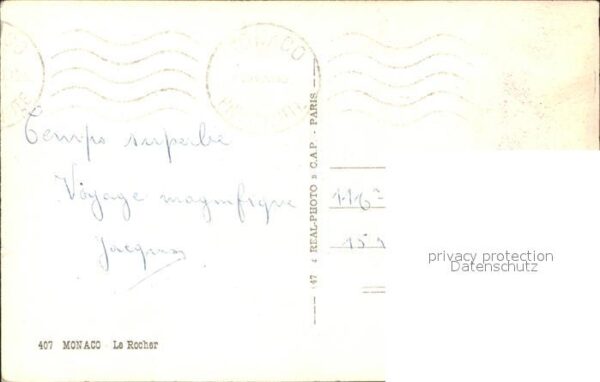 MONACO
Temps superbe
Voyage magnifique
Jacques
47 REAL-PHOTO C.A.P - PARIS
116
151
privacy protection
Datenschutz
407 MONACO Le Rocher